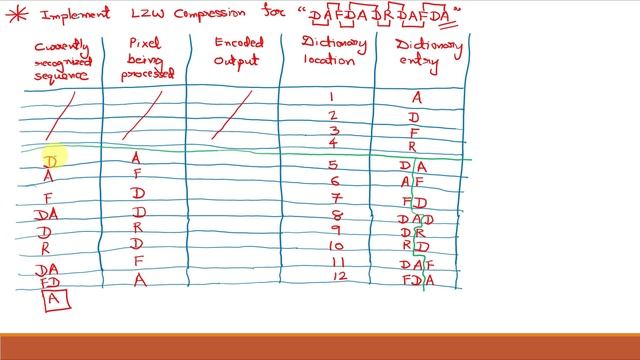 * Implement LZW Compression for "DAFDADRDAFDA"
Currently recognized sequence Pixel being processed Encoded Output Dictionary location Dictionary entry
1 A
2 D
3 F
4 R
D A 5 DA
A F 6 AF
F D 7 FD
DA D 8 DAD
D R 9 DR
R D 10 RD
DA F 11 DAF
FD A 12 FDA
A